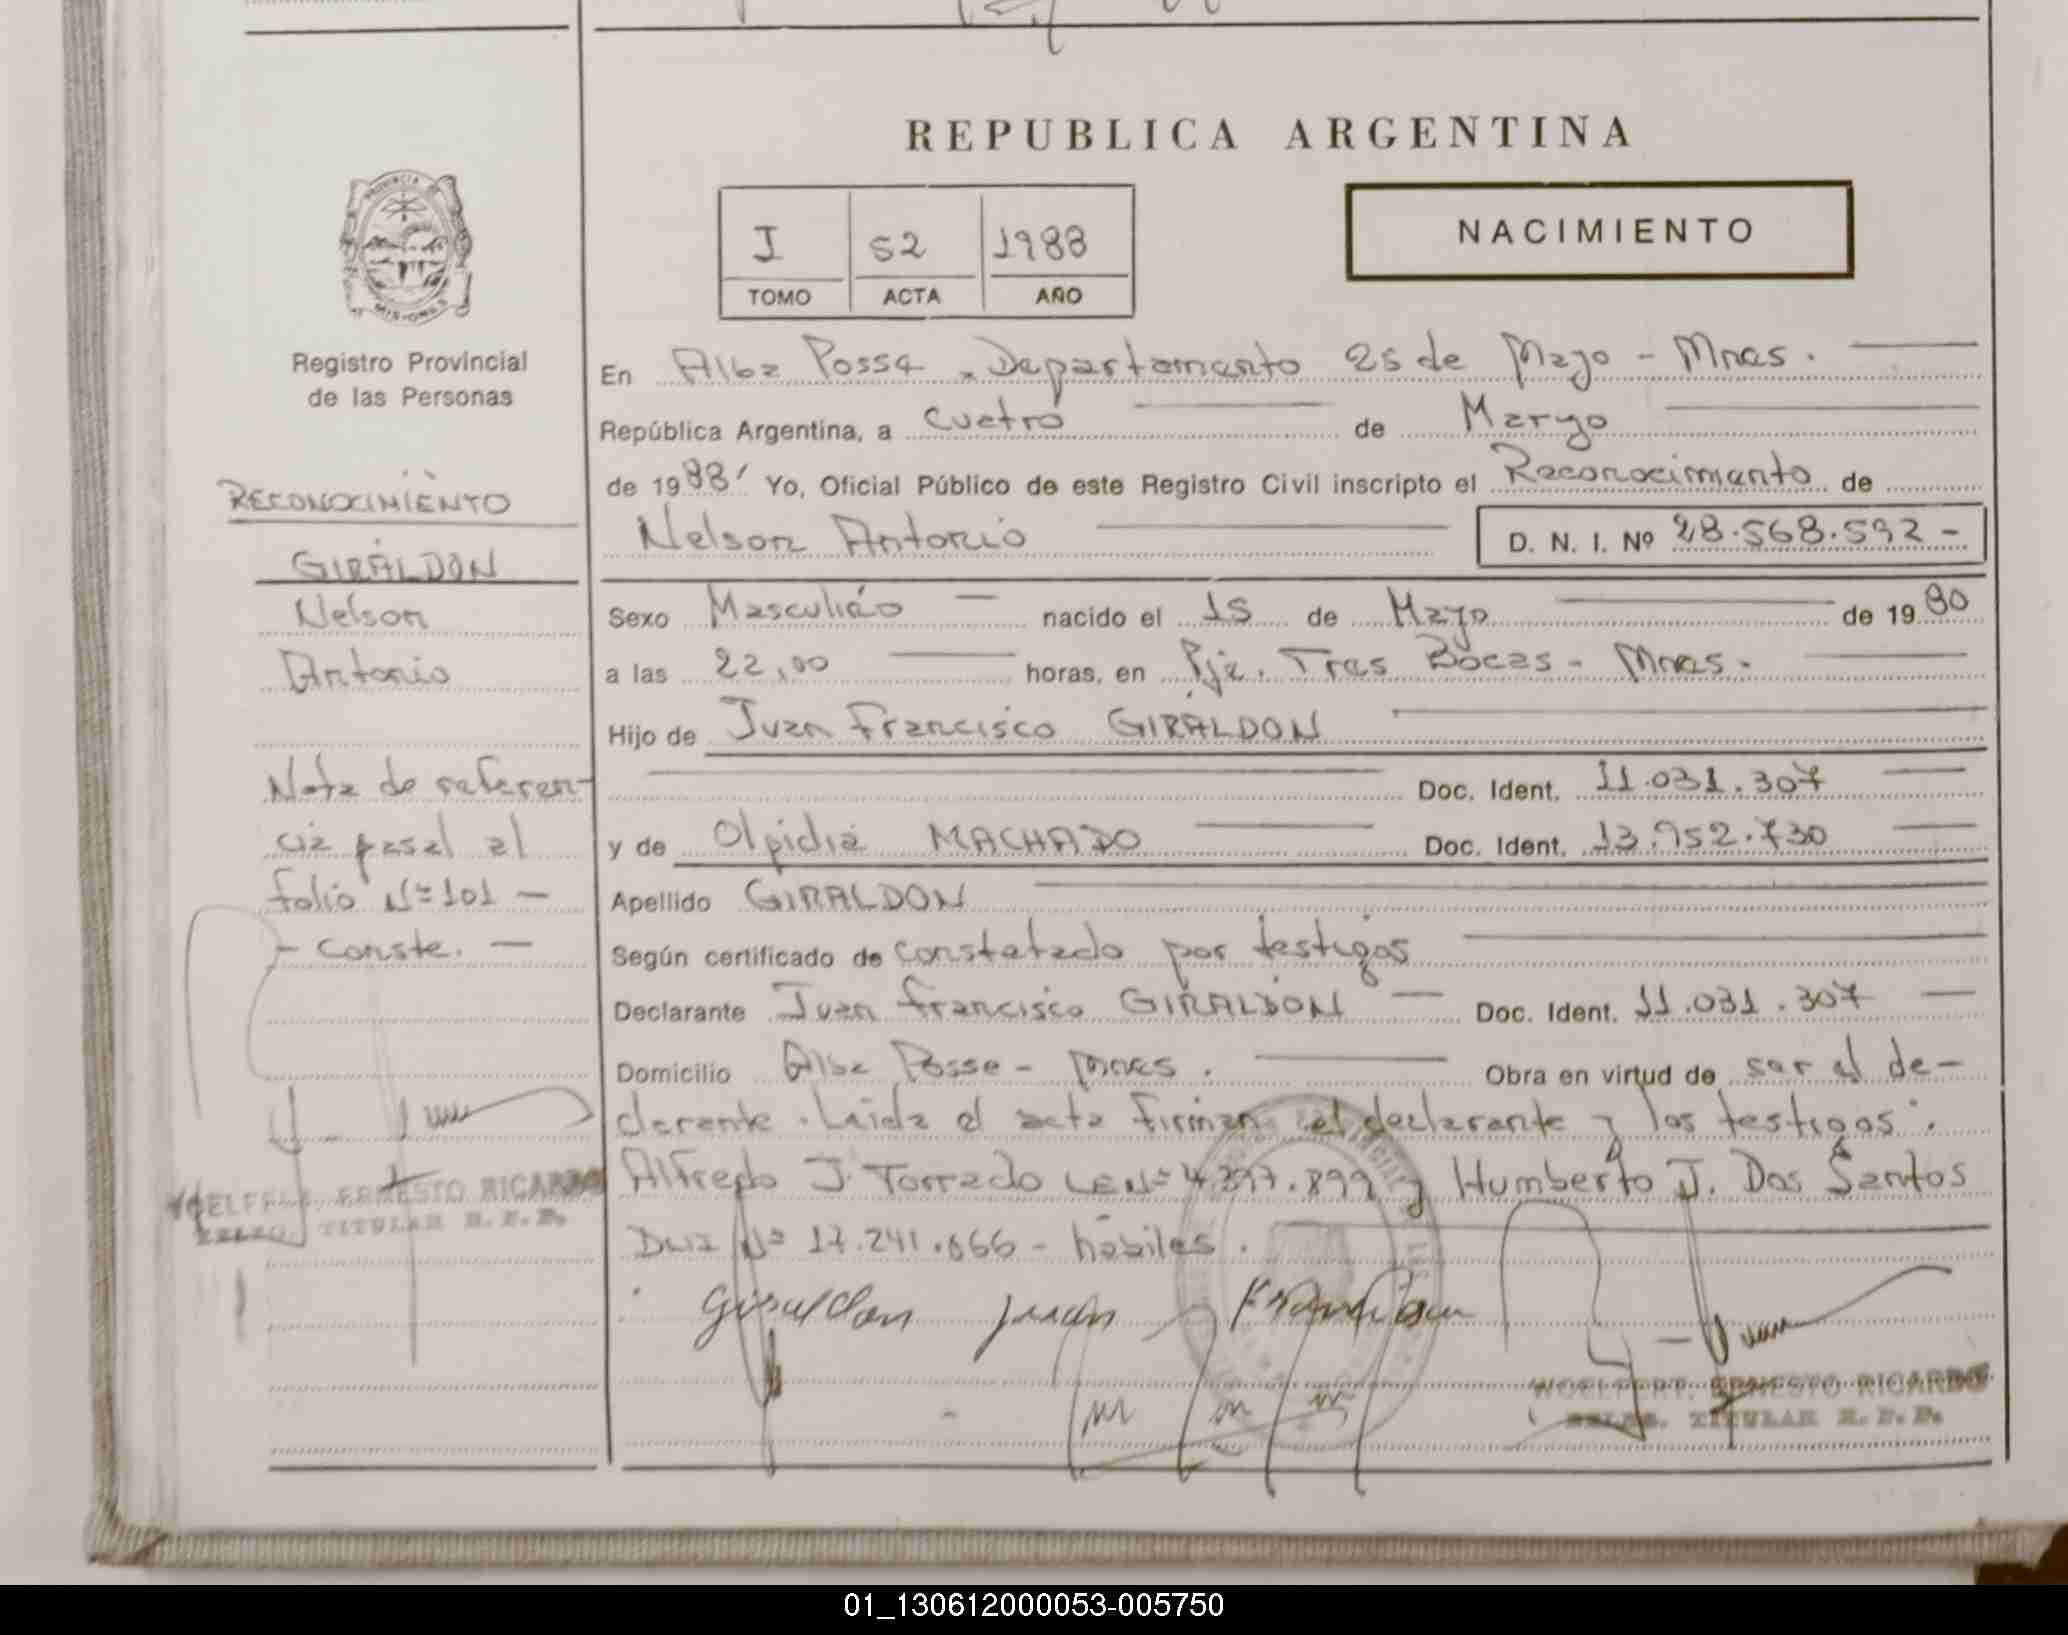 REPUBLICA ARGENTINA
NACIMIENTO
I 52 1988
TOMO ACTA AÑO
PROVINCIA
MISIONES
Registro Provincial
de las Personas
RECONOCIMIENTO
GIRALDON
Nelson
Antonio
Nota de referen-
cia pasal al
folio Nº 101 -
- Conste. -
ERNESTO RICARDO
TITULAR R. P. P.
En Alba Posse - Departamento 25 de Mayo - Mnes.
República Argentina, a Cuatro de Maryo
de 1988' Yo, Oficial Público de este Registro Civil inscripto el Reconocimiento de
Nelson Antonio D. N. I. Nº 28.568.592 -
Sexo Masculino nacido el 15 de Mayo de 1980
a las 22,00 horas, en Pje. Tres Bocas - Mnes.
Hijo de Juan Francisco GIRALDON
Doc. Ident. 11.031.307
y de Olpidia MACHADO Doc. Ident. 13.952.730
Apellido GIRALDON
Según certificado de constatado por testigos
Declarante Juan Francisco GIRALDON Doc. Ident. 11.031.307
Domicilio Alba Posse - Mnes. Obra en virtud de ser el de-
clarante. Leida el acta firman el declarante y los testigos:
Alfredo J. Torrado LE Nº 4.397.899 y Humberto J. Dos Santos
DNI Nº 17.241.666 - hábiles.
Giraldon Juan Francisco
WOELFERT, ERNESTO RICARDO
DELEG. TITULAR R. P. P.
01_130612000053-005750